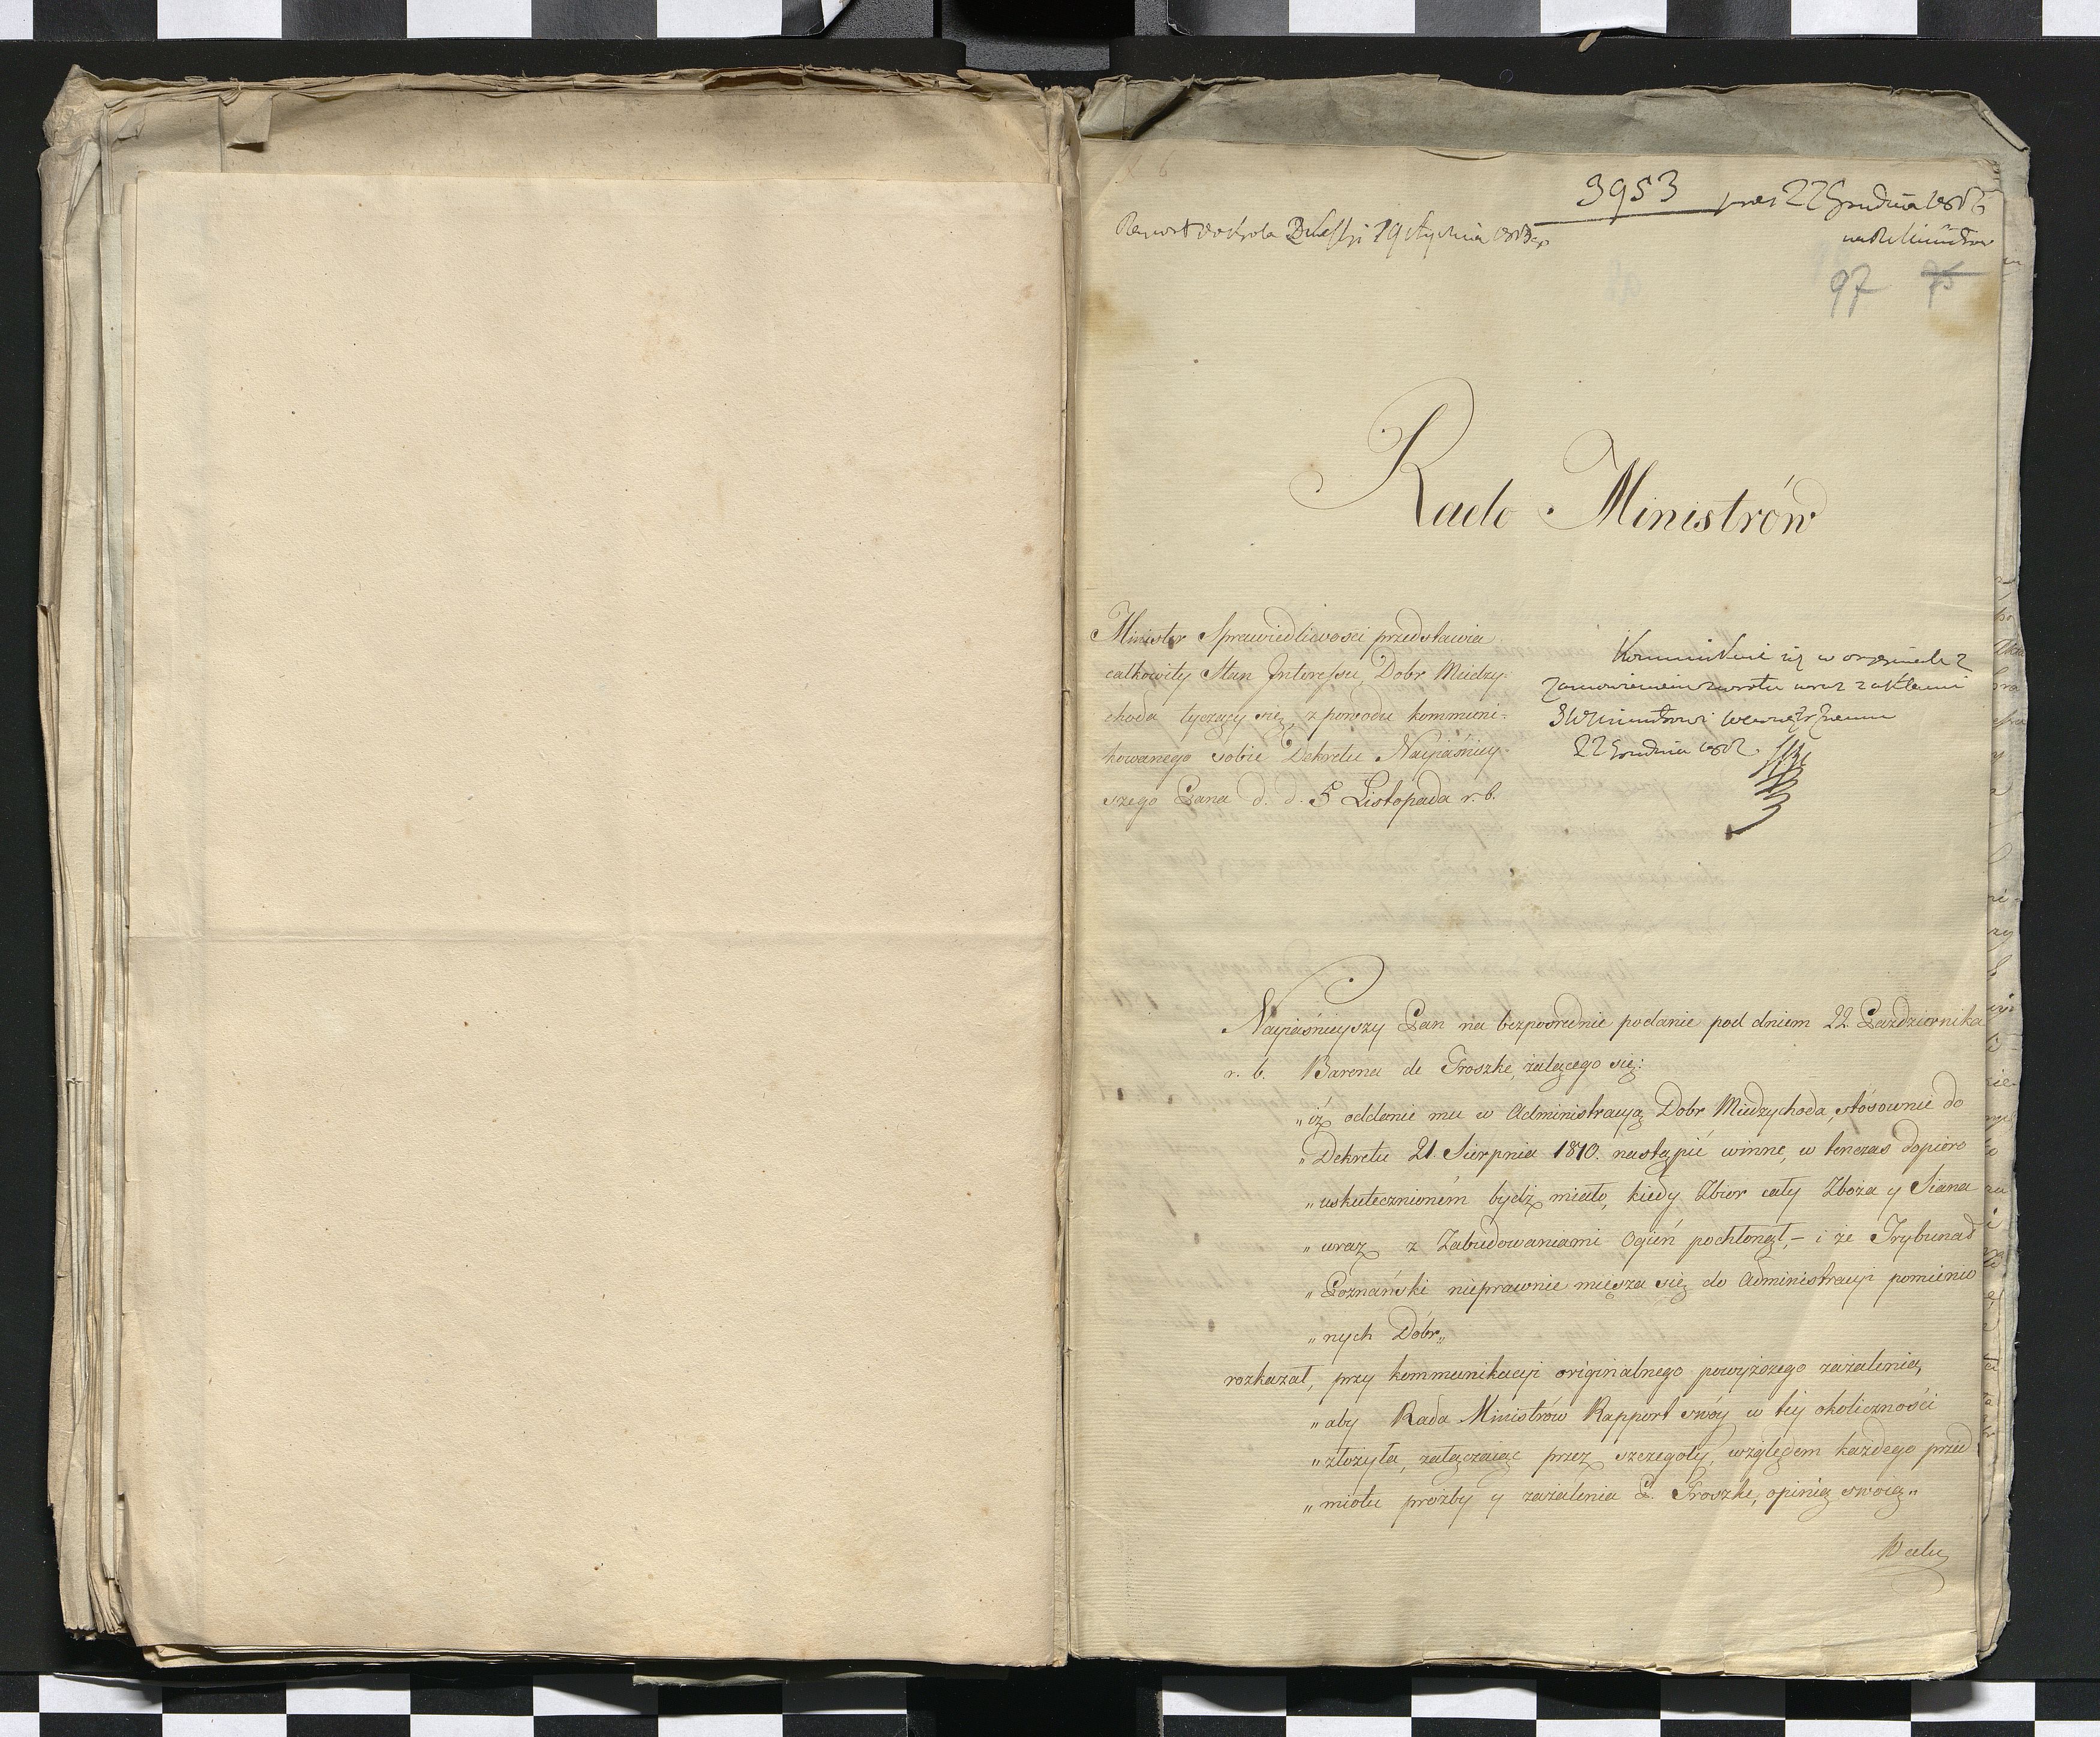 3953 pres 22 Grudnia 1812
Raport do Króla 19 stycznia 1813
na R Ministrów
97 75
Rado Ministrów
Minister Sprawiedliwości przedstawia
całkowity Stan Interessu, Dobr Miedzy-
choda tyczący się, z powodu kommuni-
kowanego sobie Dekretu Nayiaśniey-
szego Pana d. d. 5 Listopada r. b.
Kommunikuie się w oryginale z
zamówieniem zwrotu wraz z aktami
JW Ministrowi Wewnętrznemu
22 Grudnia 1812.
Nayiaśnieyszy Pan na bezposrednie podanie pod dniem 22 Pazdziernika
r. b. Barona de Troszke, żalącego się:
„iż oddanie mu w Administracyą Dobr Miedzychoda, stósownie do
„Dekretu 21. Sierpnia 1810. nastąpić winne, w tenczas dopiero
„uskutecznioném bydź miało, kiedy Zbior cały Zboża y Siana
„wraz z Zabudowaniami Ogień pochłonął, – i że Trybunał
„Poznański nieprawnie miesza się do Administracyi pomienio
„nych Dóbr„
rozkazał, przy kommunikacyi originalnego powyższego zażalenia,
„aby Rada Ministrów Rapport swóy w téy okoliczności
„złożyła, załączaiąc przez szczegoły, względem każdego przed
„miotu prożby y zażalenia P. Troszke, opinią swoię„
W celu